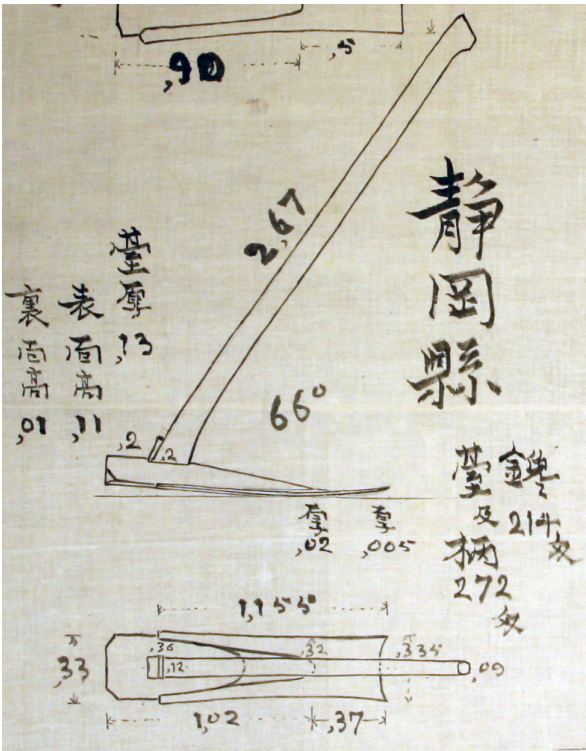 ,90
,5
2,67
静
岡
縣
臺厚,13
表面高,11
裏面高,01
66°
,2
,2
厚,02
厚,005
214匁
臺及柄
272匁
1,155
,33
,36
,12
,32
,335
,09
1,02
,37